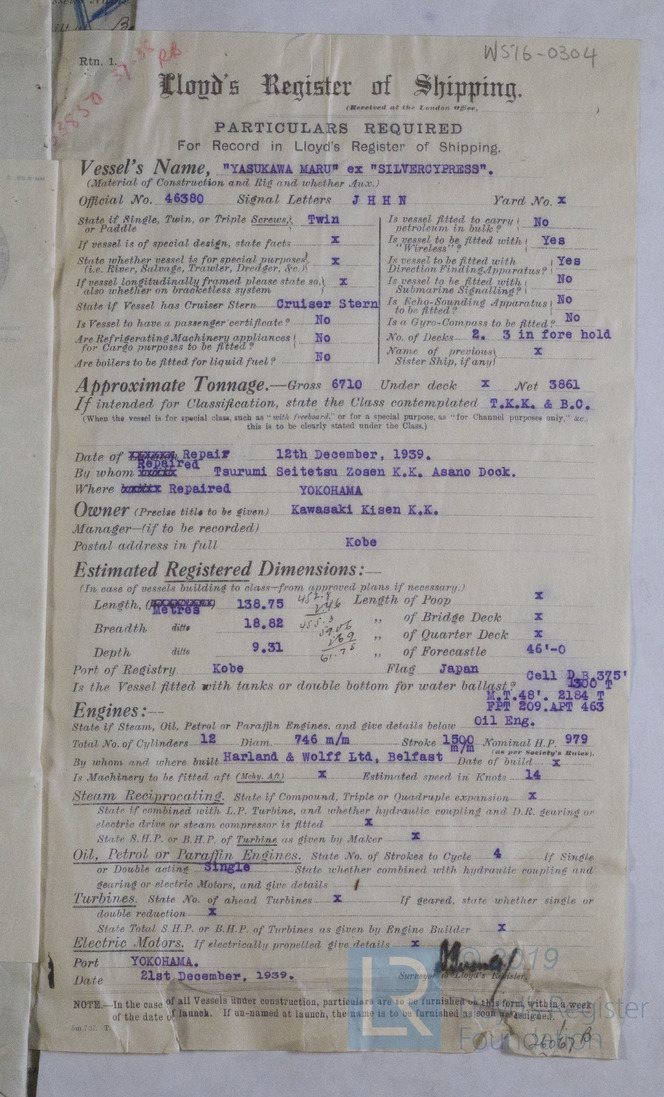 WS76-0304
Rtn. 1.
Lloyd's Register of Shipping.
(Received at the London Office,
PARTICULARS REQUIRED
For Record in Lloyd's Register of Shipping.
Vessel's Name, "YASUKAWA MARU" ex "SILVERCYPRESS".
(Material of Construction and Rig and whether Aux.)
Official No. 46380 Signal Letters J H H N Yard No. x
State if Single, Twin, or Triple Screws, or Paddle Twin
If vessel is of special design, state facts x
State whether vessel is for special purposes (i.e. River, Salvage, Trawler, Dredger, &c.) x
If vessel longitudinally framed please state so, also whether on bracketless system x
State if Vessel has Cruiser Stern Cruiser Stern
Is Vessel to have a passenger certificate? No
Are Refrigerating Machinery appliances for Cargo purposes to be fitted? No
Are boilers to be fitted for liquid fuel? No
Is vessel fitted to carry petroleum in bulk? No
Is vessel to be fitted with "Wireless"? Yes
Is vessel to be fitted with Direction Finding Apparatus? Yes
Is vessel to be fitted with Submarine Signalling? No
Is Echo-Sounding Apparatus to be fitted? No
Is a Gyro-Compass to be fitted? No
No. of Decks 2. 3 in fore hold
Name of previous Sister Ship, if any x
Approximate Tonnage.—Gross 6710 Under deck x Net 3861
If intended for Classification, state the Class contemplated T.K.K. & B.C.
(When the vessel is for special class, such as "with freeboard," or for a special purpose, as "for Channel purposes only," &c.,
this is to be clearly stated under the Class.)
Date of Repair 12th December, 1939.
By whom Repaired Tsurumi Seitetsu Zosen K.K. Asano Dock.
Where Repaired YOKOHAMA
Owner (Precise title to be given) Kawasaki Kisen K.K.
Manager—(if to be recorded)
Postal address in full Kobe
Estimated Registered Dimensions:—
(In case of vessels building to class—from approved plans if necessary.)
Length, Metres 138.75 Length of Poop x
Breadth ditto 18.82 „ of Bridge Deck x
„ of Quarter Deck x
Depth ditto 9.31 „ of Forecastle 46'-0
Port of Registry Kobe Flag Japan Cell D.B. 375'
Is the Vessel fitted with tanks or double bottom for water ballast? 1300 T
M.T.48'. 2184 T
FPT 209.APT 463
Engines:—
State if Steam, Oil, Petrol or Paraffin Engines, and give details below Oil Eng.
Total No. of Cylinders 12 Diam. 746 m/m Stroke 1500 m/m Nominal H.P. 979
(as per Society's Rules).
By whom and where built Harland & Wolff Ltd, Belfast Date of build x
Is Machinery to be fitted aft (Mchy. Aft) x Estimated speed in Knots 14
Steam Reciprocating. State if Compound, Triple or Quadruple expansion x
State if combined with L.P. Turbine, and whether hydraulic coupling and D.R. gearing or
electric drive or steam compressor is fitted x
State S.H.P. or B.H.P. of Turbine as given by Maker x
Oil, Petrol or Paraffin Engines. State No. of Strokes to Cycle 4 If Single
or Double acting Single State whether combined with hydraulic coupling and
gearing or electric Motors, and give details
Turbines. State No. of ahead Turbines x If geared, state whether single or
double reduction x
State Total S.H.P. or B.H.P. of Turbines as given by Engine Builder x
Electric Motors. If electrically propelled give details x
Port YOKOHAMA.
Date 21st December, 1939. Surveyor to Lloyd's Register.
© 2019
NOTE.—In the case of all Vessels under construction, particulars are to be furnished on this form, within a week
of the date of launch. If un-named at launch, the name is to be furnished as soon as assigned.
LR
Lloyd's Register
Foundation